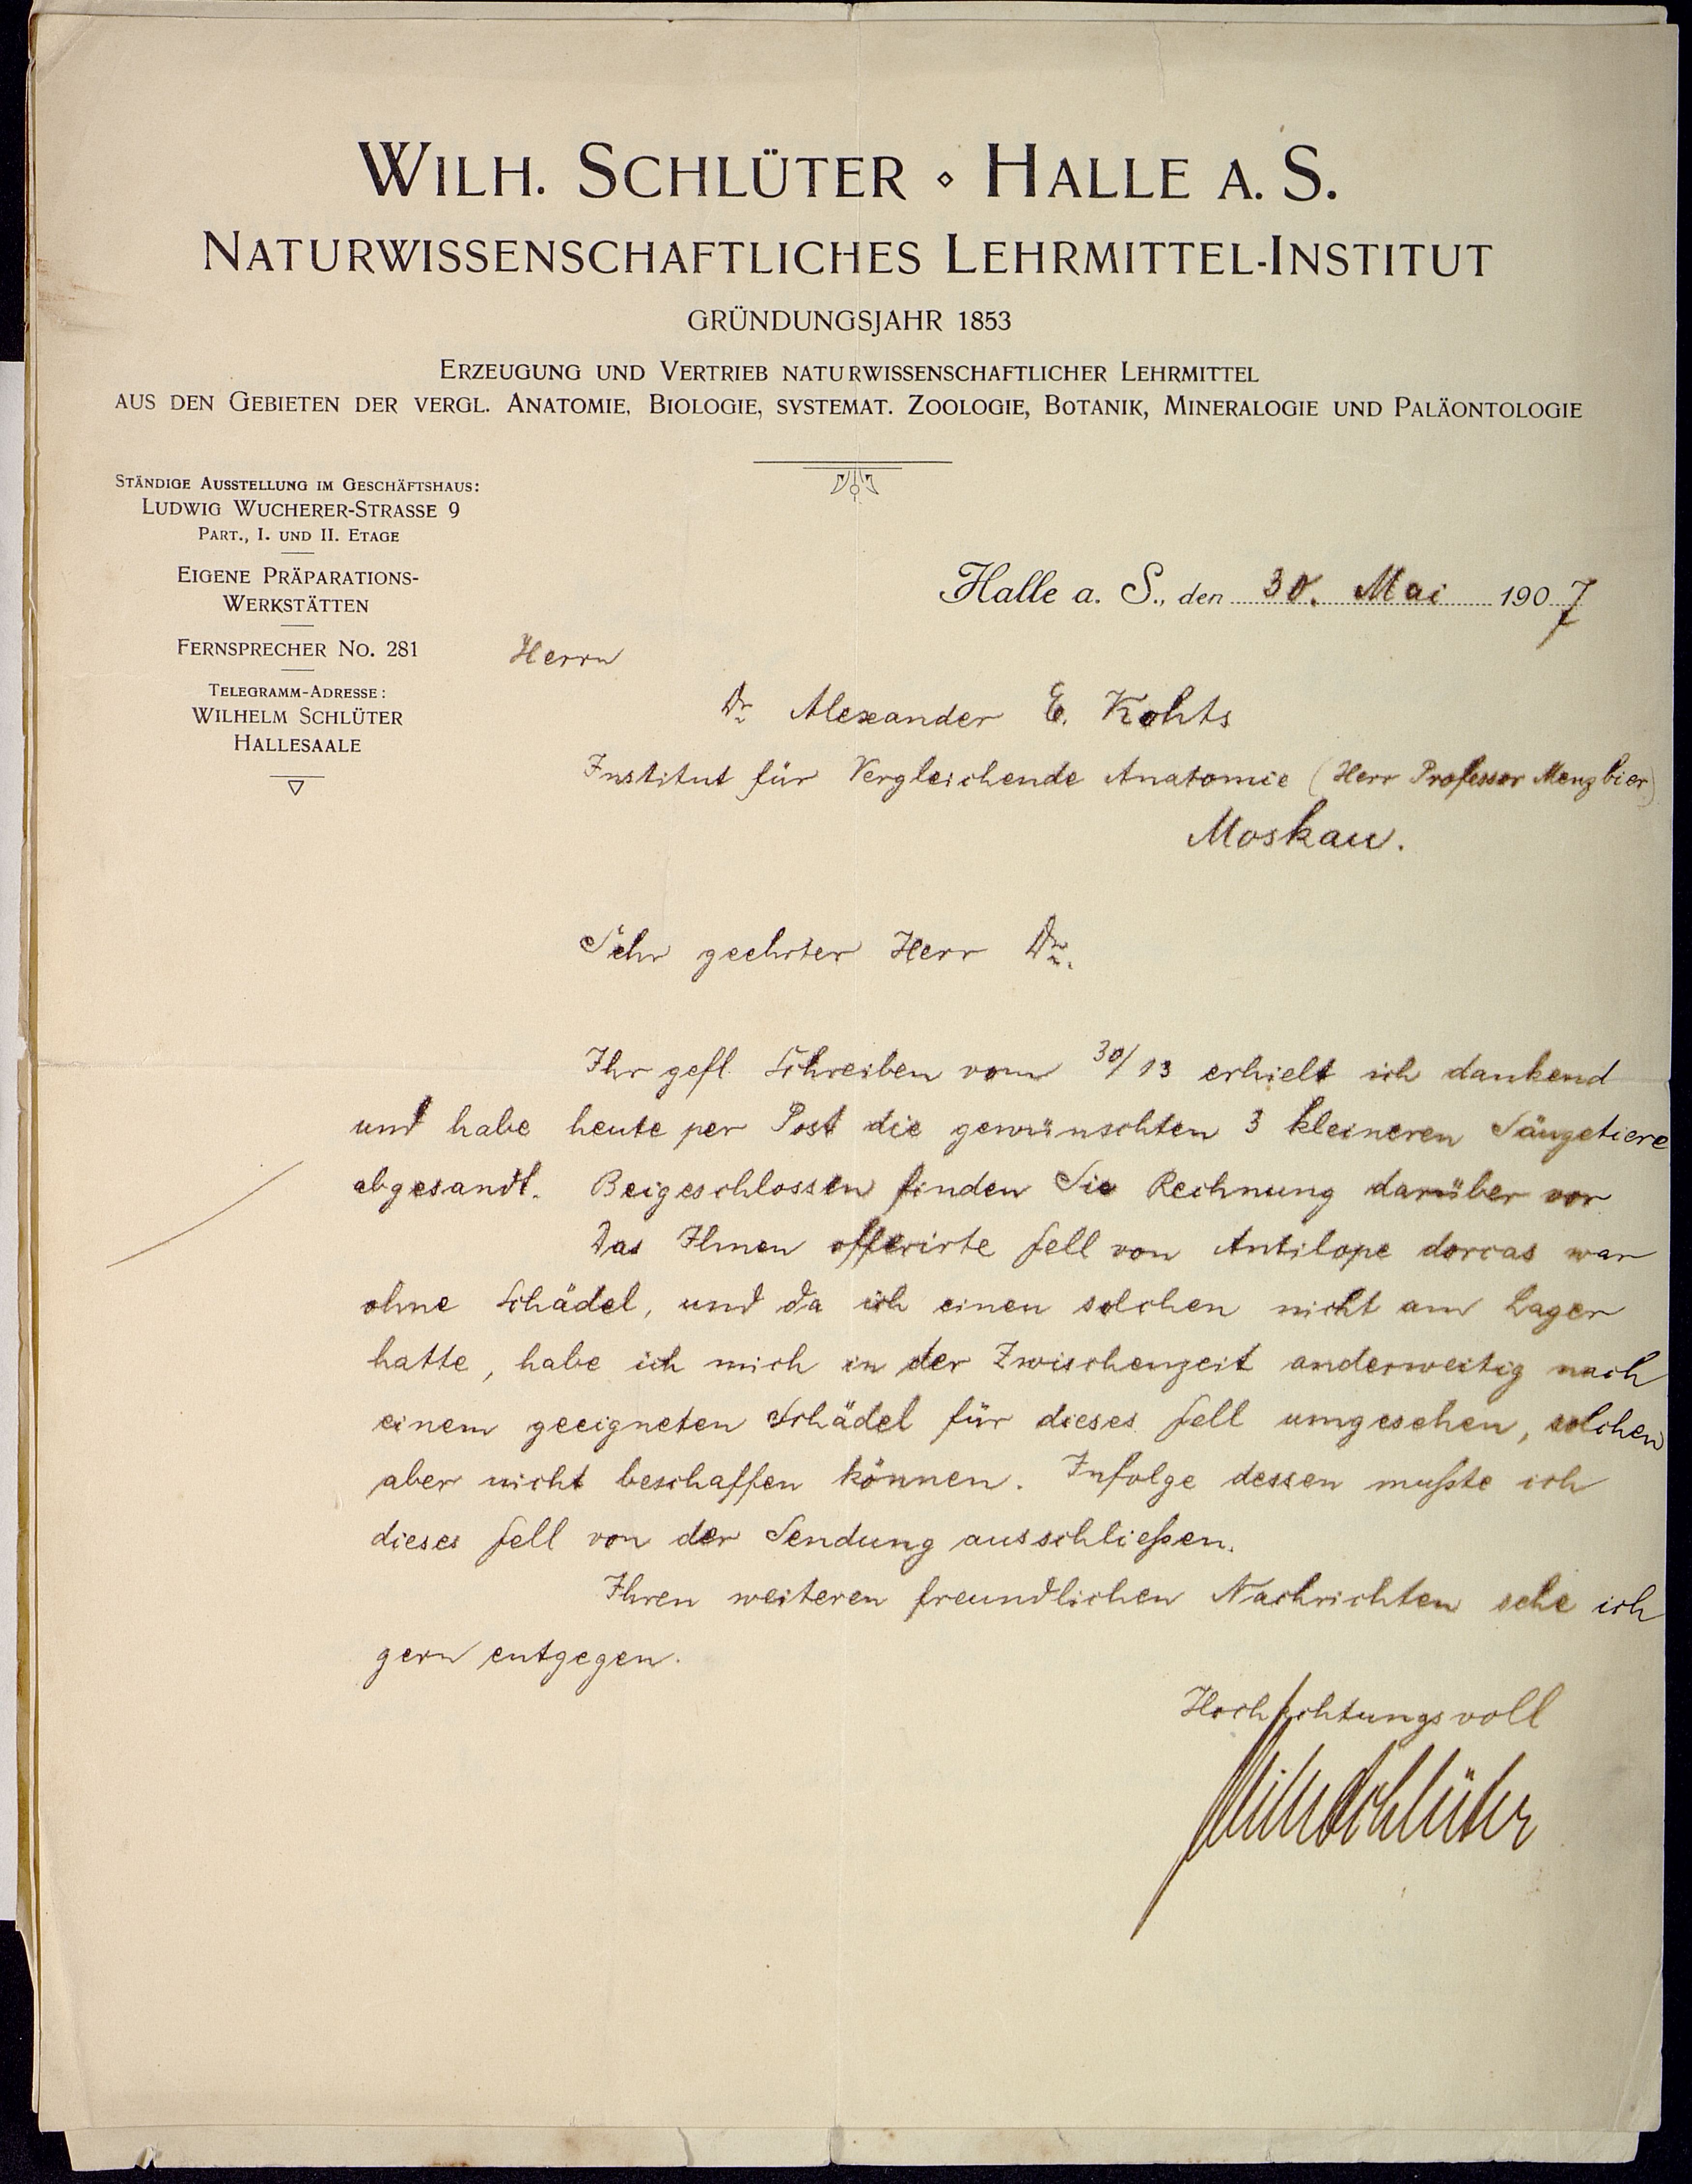 WILH. SCHLÜTER ⋄ HALLE A. S.
NATURWISSENSCHAFTLICHES LEHRMITTEL-INSTITUT
GRÜNDUNGSJAHR 1853
ERZEUGUNG UND VERTRIEB NATURWISSENSCHAFTLICHER LEHRMITTEL
AUS DEN GEBIETEN DER VERGL. ANATOMIE, BIOLOGIE, SYSTEMAT. ZOOLOGIE, BOTANIK, MINERALOGIE UND PALÄONTOLOGIE
STÄNDIGE AUSSTELLUNG IM GESCHÄFTSHAUS:
LUDWIG WUCHERER-STRASSE 9
PART., I. UND II. ETAGE
EIGENE PRÄPARATIONS-
WERKSTÄTTEN
FERNSPRECHER No. 281
TELEGRAMM-ADRESSE:
WILHELM SCHLÜTER
HALLESAALE
Halle a. S., den 30. Mai 1907
Herrn
Dr Alexander E. Kohts
Institut für Vergleichende Anatomie (Herr Professor Menzbier)
Moskau.
Sehr geehrter Herr Dr.
Ihr gefl. Schreiben vom 30/13 erhielt ich dankend
und habe heute per Post die gewünschten 3 kleineren Säugetiere
abgesandt. Beigeschlossen finden Sie Rechnung darüber vor
Das Ihnen offerirte Fell von Antilope dorcas war
ohne Schädel, und da ich einen solchen nicht am Lager
hatte, habe ich mich in der Zwischenzeit anderweitig nach
einem geeigneten Schädel für dieses Fell umgesehen, solchen
aber nicht beschaffen können. Infolge dessen mußte ich
dieses Fell von der Sendung ausschließen.
Ihren weiteren freundlichen Nachrichten sehe ich
gern entgegen.
Hochachtungsvoll
Wilh Schlüter